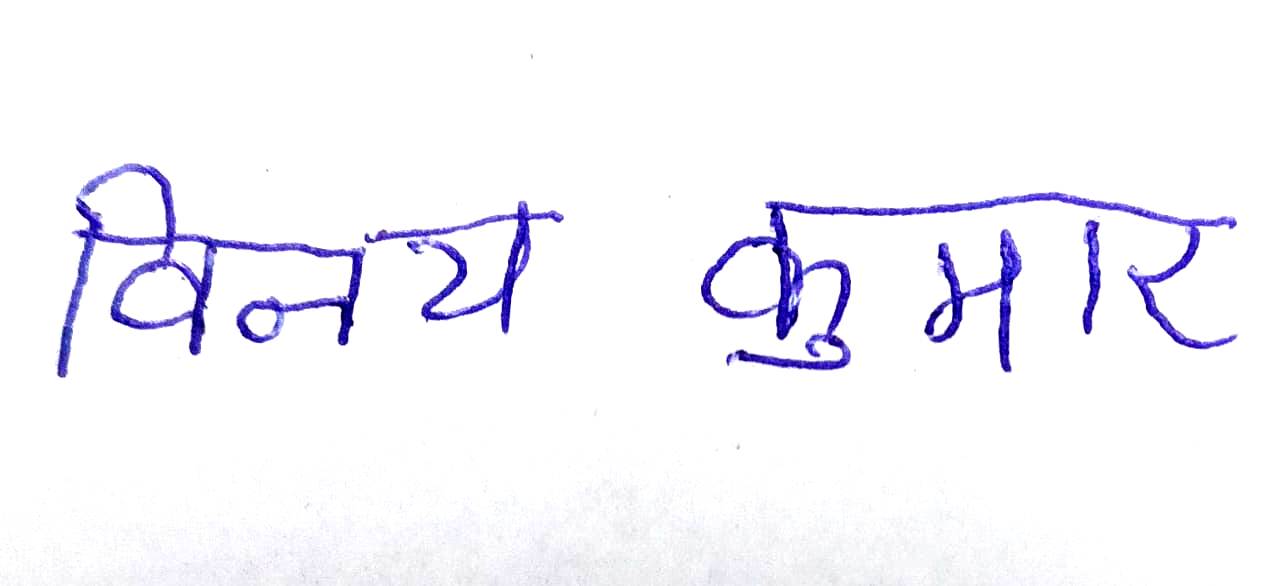 विनय कुमार